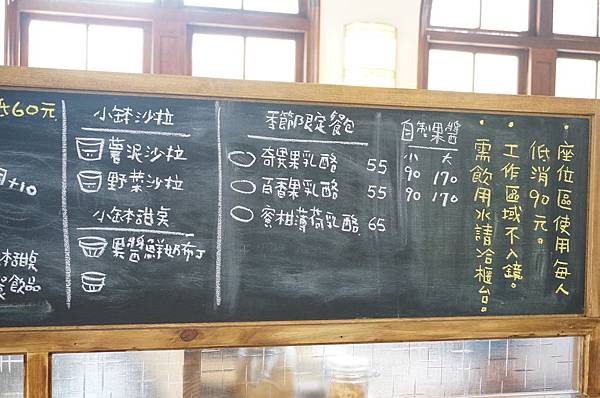 低60元
月+10
本甜点
餐飲品
小缽沙拉
薯泥沙拉
野菜沙拉
小缽甜点
果醬鮮奶布丁
季節限定餐包
奇異果乳酪 55
百香果乳酪 55
蜜柑薄荷乳酪 65
自製果醬
小 大
90 170
90 170
• 座位區使用每人
低消90元。
• 工作區域不入鏡。
• 需飲用水請洽櫃台。